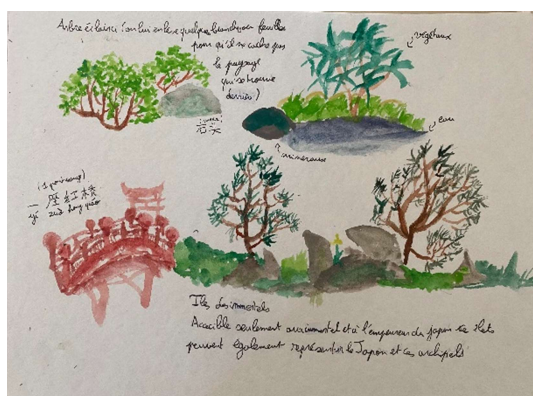 Arbre éclairci (on lui enlève quelques branches ou feuilles
pour qu'il ne cache pas
le paysage
qui se trouve
derrière)
végétaux
eau
minéraux
(1 pont rouge)
一座红桥
yī zuò hóng qiáo
Iles des immortels
Accessible seulement aux immortel et à l'empereur du japon ces îlots
peuvent également représenter le Japon et ces archipels